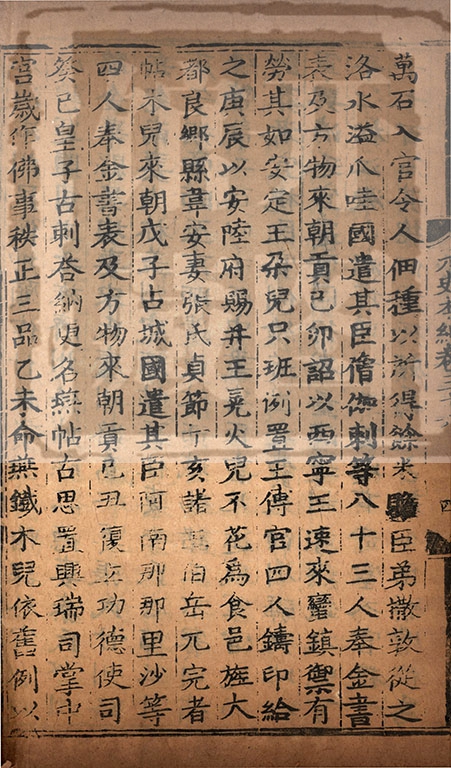 萬石入官令人佃種以所得餘米贍臣弟撒敦從之
洛水溢爪哇國遣其臣僧伽剌等八十三人奉金書
表及方物來朝貢己卯詔以西寧王速來蠻鎮禦有
勞其如安定王朵兒只班例置王傅官四人鑄印給
之庚辰以安陸府賜并王晃火兒不花為食邑旌大
都良鄉縣韋安妻張氏貞節丁亥諸王伯岳兀完者
帖木兒來朝戊子占城國遣其臣阿南那那里沙等
四人奉金書表及方物來朝貢己丑復立功德使司
癸巳皇子古剌荅納更名燕帖古思置興瑞司掌中
宮歲作佛事秩正三品乙未命燕鐵木兒依舊例以